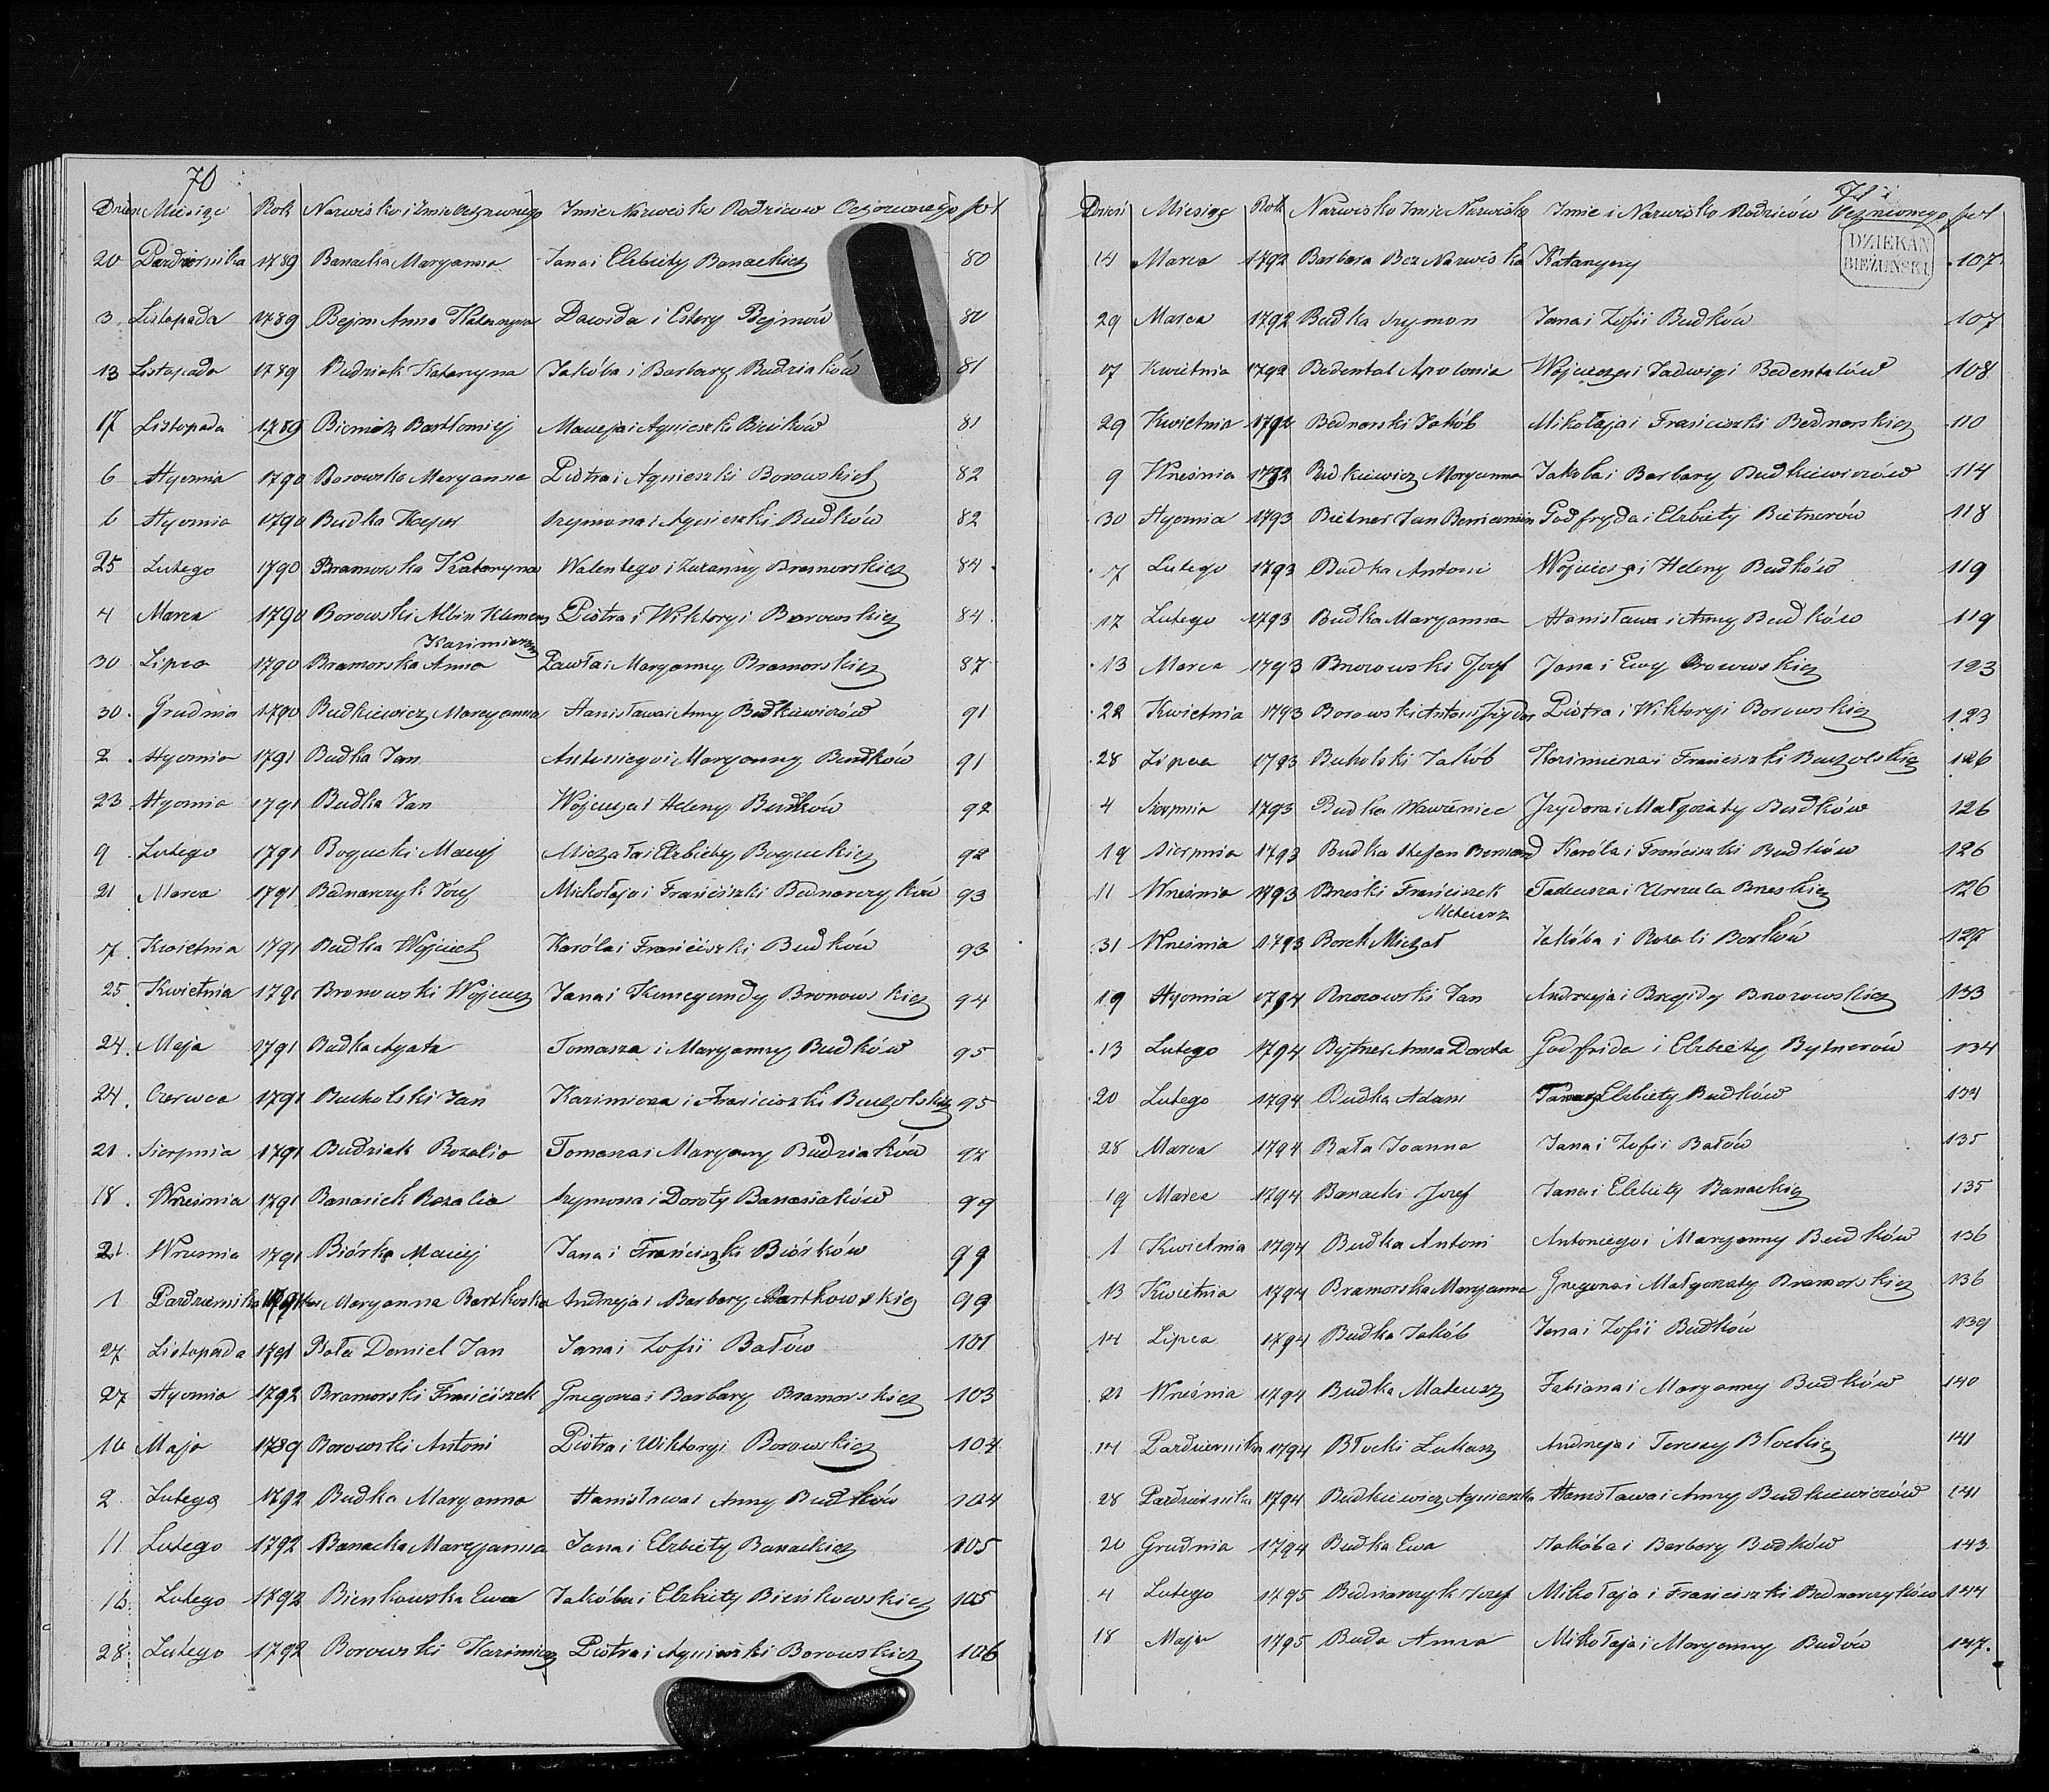 70
Dzień Miesiąc Rok Nazwisko i Imie Ochrzconego Imie Nazwisko Rodziców Ochrzconego fol
20 Pazdziernika 1789 Banacka Maryanna Jana i Elzbiety Banackich 80
3 Listopada 1789 Bejm Anna Katarzyna Dawida i Estery Bejmów 80
13 Listopada 1789 Budziak Katarzyna Jakóba i Barbary Budziaków 81
17 Listopada 1789 Bartłomiej Macieja i Agnieszki 81
6 Stycznia 1790 Borowska Maryanna Piotra i Agnieszki Borowskich 82
6 Stycznia 1790 Budka Kacper Szymona i Agnieszki Budków 82
25 Lutego 1790 Bramorska Katarzyna Walentego i Zuzanny Bramorskich 84
4 Marca 1790 Borowski Albin Klemens Piotra i Wiktoryi Borowskich 84
Kazimierz
30 Lipca 1790 Bramorska Anna Pawła i Maryanny Bramorskich 87
30 Grudnia 1790 Budkiewicz Maryanna Stanisława i Anny Budkiewiczów 91
2 Stycznia 1791 Budka Jan Antoniego i Maryanny Budków 91
23 Stycznia 1791 Budka Jan Wojciecha i Heleny Budków 92
9 Lutego 1791 Bogucki Maciej Michała i Elzbiety Boguckich 92
21 Marca 1791 Bednarczyk Józef Mikołaja i Franciszki Bednarczyków 93
7 Kwietnia 1791 Budka Wojciech Karóla i Franciszki Budków 93
25 Kwietnia 1791 Bronowski Wojciech Jana i Kunegundy Bronowskich 94
24 Maja 1791 Budka Agata Tomasza i Maryanny Budków 95
24 Czerwca 1791 Bucholski Jan Kazimierza i Franciszki Bucholskich 95
21 Sierpnia 1791 Budziak Rozalia Tomasza i Maryanny Budziaków
18 Wrzesnia 1791 Banasiek Rozalia Szymona i Doroty Banasiaków 99
21 Wrzesnia 1791 Biórka Maciej Jana i Franciszki Biórków 99
1 Pazdziernika 1791 Maryanna Bartkoska Andrzeja i Barbary Bartkowskich 99
27 Listopada 1791 Bała Daniel Jan Jana i Zofii Bałów 101
27 Stycznia 1792 Bramorski Franciszek Grzegorza i Barbary Bramorskich 103
16 Maja 1789 Borowski Antoni Piotra i Wiktoryi Borowskich 104
2 Lutego 1792 Budka Maryanna Stanisława i Anny Budków 104
11 Lutego 1792 Banacka Maryanna Jana i Elzbiety Banackich 105
16 Lutego 1792 Bienkowska Ewa Jakóba i Elzbiety Bieńkowskich 105
28 Lutego 1792 Borowski Kazimierz Piotra i Agnieszki Borowskich 106
71
Dzień Miesiąc Rok Nazwisko Imie Nazwisko Imie i Nazwisko Rodziców Ochrzconego fol
DZIEKAN
BIEŻUŃSKI
14 Marca 1792 Barbara Bez Nazwiska Katarzyny 107
29 Marca 1792 Budka Szymon Jana i Zofii Budków 107
07 Kwietnia 1792 Bedental Apolonia Wojciecha i Jadwigi Bedentalów 108
29 Kwietnia 1792 Bednarski Jakób Mikołaja i Franciszki Bednarskich 110
9 Wrzesnia 1792 Budkiewicz Maryanna Jakóba i Barbary Budkiewiczów 114
30 Stycznia 1793 Bietner Jan Beniamin Godfryda i Elzbiety Bietnerów 118
7 Lutego 1793 Budka Antoni Wojciecha i Heleny Budków 119
17 Lutego 1793 Budka Maryanna Stanisława i Anny Budków 119
13 Marca 1793 Brzozowski Jozef Jana i Ewy 123
22 Kwietnia 1793 Borowski Antoni Izydor Piotra i Wiktoryi Borowskich 123
28 Lipca 1793 Bucholski Jakób Kazimierza i Franciszki Bucholskich 126
4 Sierpnia 1793 Budka Wawrzeniec Izydora i Małgorzaty Budków 126
19 Sierpnia 1793 Budka Stefan Bernard Karóla i Franciszki Budków 126
11 Wrzesnia 1793 Brzeski Franciszek Tadeusza i Urszula Brzeskich 126
Mateusz
31 Wrzesnia 1793 Borek Michał Jakóba i Rozali Borków 127
19 Stycznia 1794 Brzozowski Jan Andrzeja i Brygidy Brzozowskich 133
13 Lutego 1794 Bytner Anna Dorota Godfrida i Elzbiety Bytnerów 134
20 Lutego 1794 Budka Adam Elzbiety Budków 134
28 Marca 1794 Bała Joanna Jana i Zofii Bałów 135
19 Marca 1794 Banacki Jozef Jana i Elzbiety Banackich 135
1 Kwietnia 1794 Budka Antoni Antoniego i Maryanny Budków 136
13 Kwietnia 1794 Bramorska Maryanna Grzegorza i Małgorzaty Bramorskich 136
14 Lipca 1794 Budka Jakób Jana i Zofii Budków 139
21 Wrzesnia 1794 Budka Mateusz Fabiana i Maryanny Budków 140
14 Pazdziernika 1794 Błocki Łukasz Andrzeja i Teresy Błockich 141
28 Pazdziernika 1794 Budkiewicz Agnieszka Stanisława i Anny Budkiewiczów 141
20 Grudnia 1794 Budka Ewa Jakóba i Barbary Budków 143
4 Lutego 1795 Bednarczyk Jozef Mikołaja i Franciszki Bednarczyków 144
18 Maja 1795 Buda Anna Mikołaja i Maryanny Budów 147